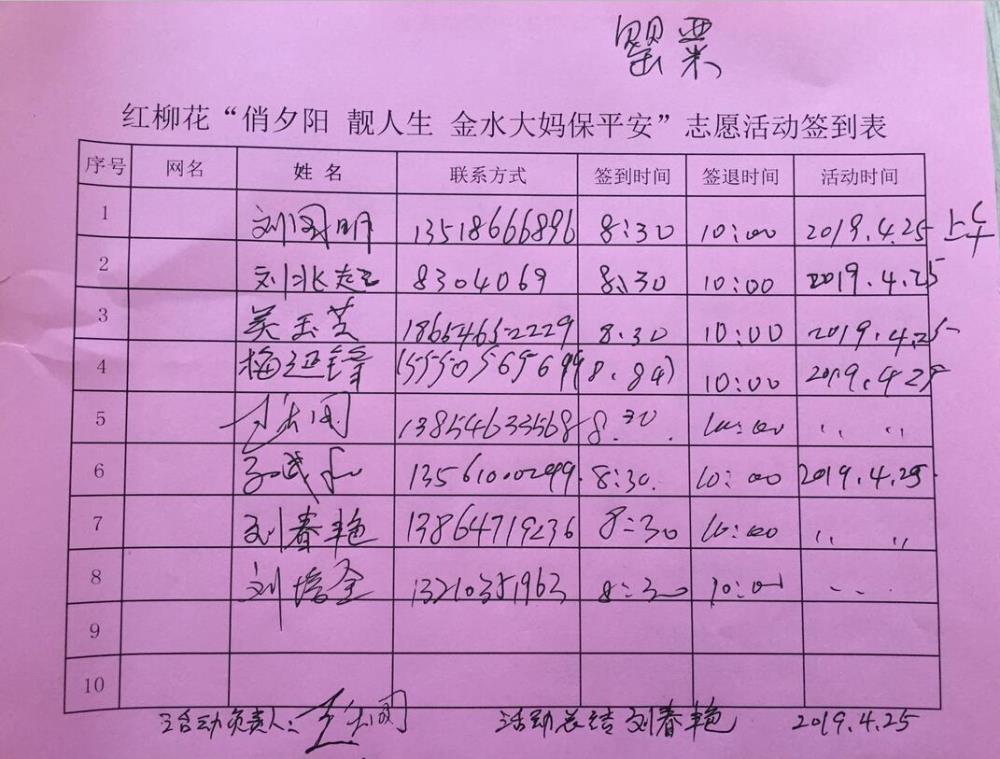 罂粟
红柳花“俏夕阳 靓人生 金水大妈保平安”志愿活动签到表
序号 网名 姓名 联系方式 签到时间 签退时间 活动时间
1 刘国明 13518666896 8:30 10:00 2019.4.25 上午
2 刘兆起 8304069 8:30 10:00 2019.4.25
3 吴玉芝 18654652229 8:30 10:00 2019.4.25
4 梅延锋 10:00 2019.4.25
5 13854633568 8:30 10:00 〃 〃
6 孙武 13561000299 8:30 10:00 2019.4.25
7 刘春艳 13864719236 8:30 10:00 〃 〃
8 刘培全 13210351963 8:30 10:00
9
10
活动负责人: 活动总结 刘春艳 2019.4.25